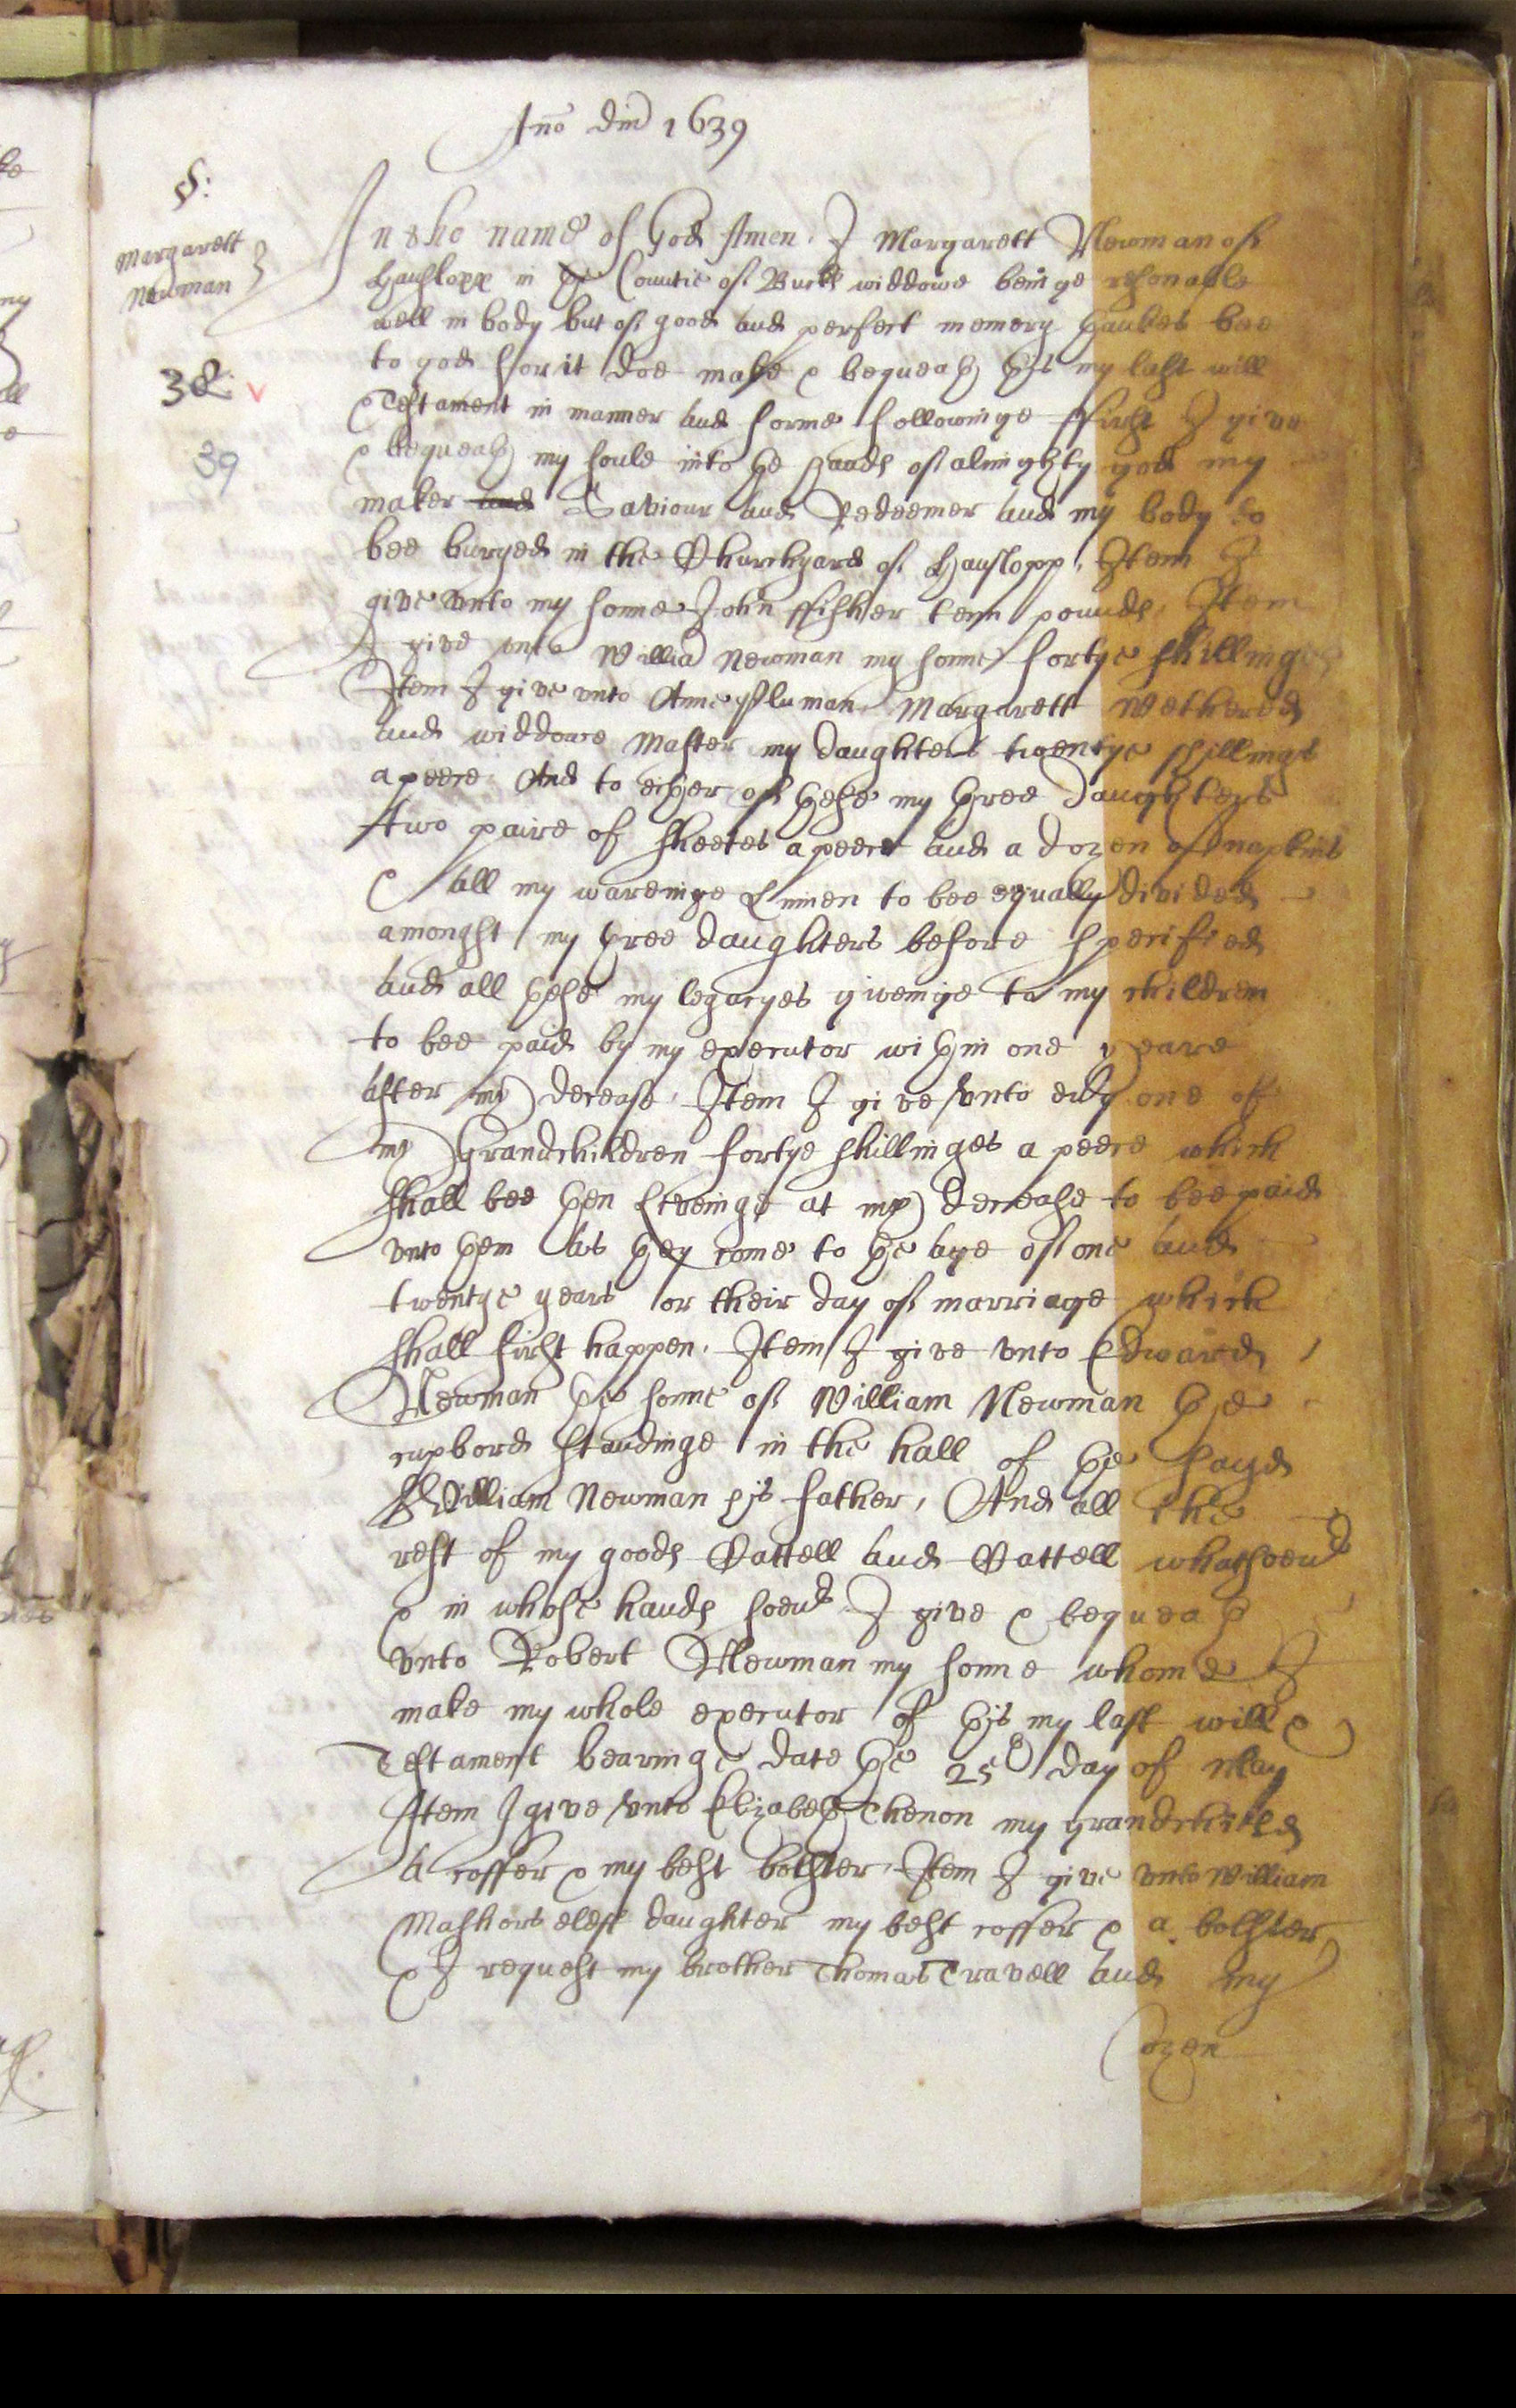 Ano dni 1639
S:
Margarett
Newman
38
39
In the name of God Amen. I Margarett Newman of
Hanslopp in the Countie of Bucks widdowe beinge resonable
well in body but of good and perfect memory thankes bee
to god for it doe make & bequeath this my last will
& Testament in manner and forme followinge ffirst I give
& bequeath my soule into the hands of almighty god my
maker and Saviour and Redeemer and my body to
bee buryed in the Churchyard of Hanslopp, Item I
give vnto my sonne John ffisher tenn pounds, Item
I give vnto Willia Newman my sonne fortye shillinges
Item I give vnto Anne Margarett Wethered
and widdowe Master my daughters twentye shillings
a peece And to either of these my three Daughters
two paire of sheetes a peece and a dozen of napkins
& all my wareinge Linnen to bee equally divided
amongst my three daughters before specified
and all these my legacyes giveinge to my children
to bee paid by my executor within one yeare
after my decease, Item I give vnto euy one of
my Grandchildren fortye shillinges a peece which
shall bee then liveinge at my decease to bee paid
vnto them as they come to the age of one and
twentye years or their day of marriage which
shall first happen, Item I give vnto Edward
Newman the sonne of William Newman the
cupbord standinge in the hall of the sayd
William Newman his father, And all the
rest of my goods Cattell and Cattell whatsoeu
& in whose hands soeu I give & bequeath
vnto Robert Newman my sonne whome I
make my whole executor of this my last will &
Testament bearinge date the 25th day of May
Item I give vnto Elizabeth Thenon my grandchild
a coffer & my best bolster, Item I give vnto William
Mashors eldest daughter my best coffer & a bolster,
& I request my brother Thomas Travell and my
Cozen